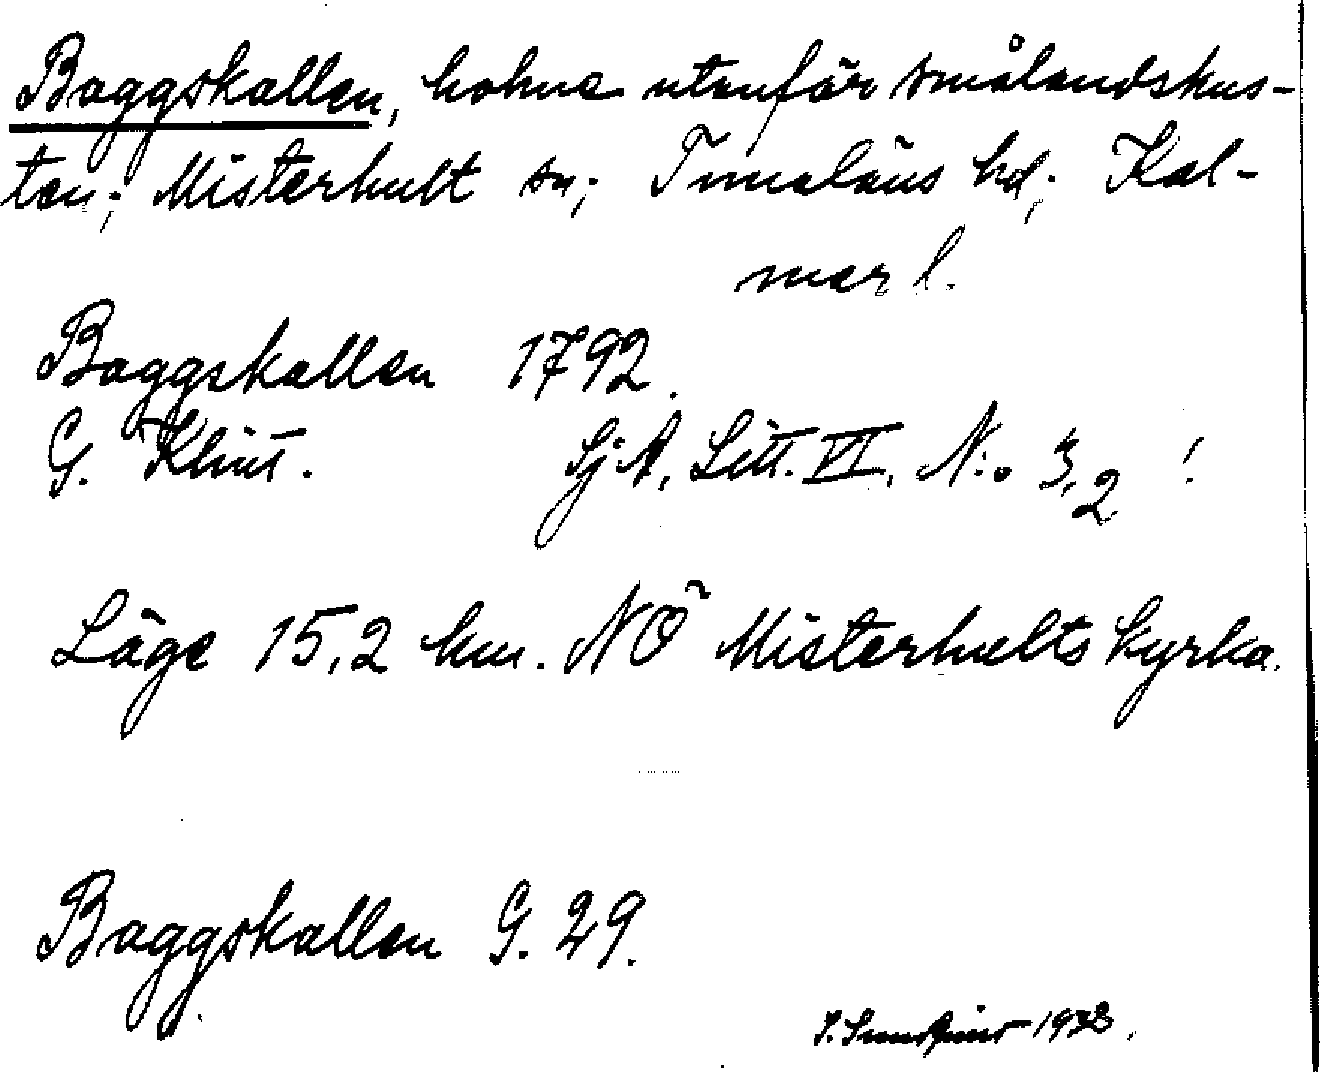 Baggskallen, holme utanför smålandskus-
ten; Misterhult sn; Tunaläns hd; Kal-
mar l.
Baggskallen 1792.
G. Klint. Sj A, Litt. VI, N:o 3,2 !
Läge 15,2 km. NÖ Misterhults kyrka.
Baggskallen G. 29.
1938.